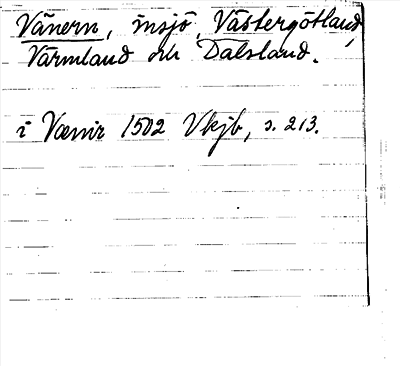 Vänern, insjö, Västergötland,
Värmland och Dalsland.
i Vænir 1502 Vkjb, s. 213.